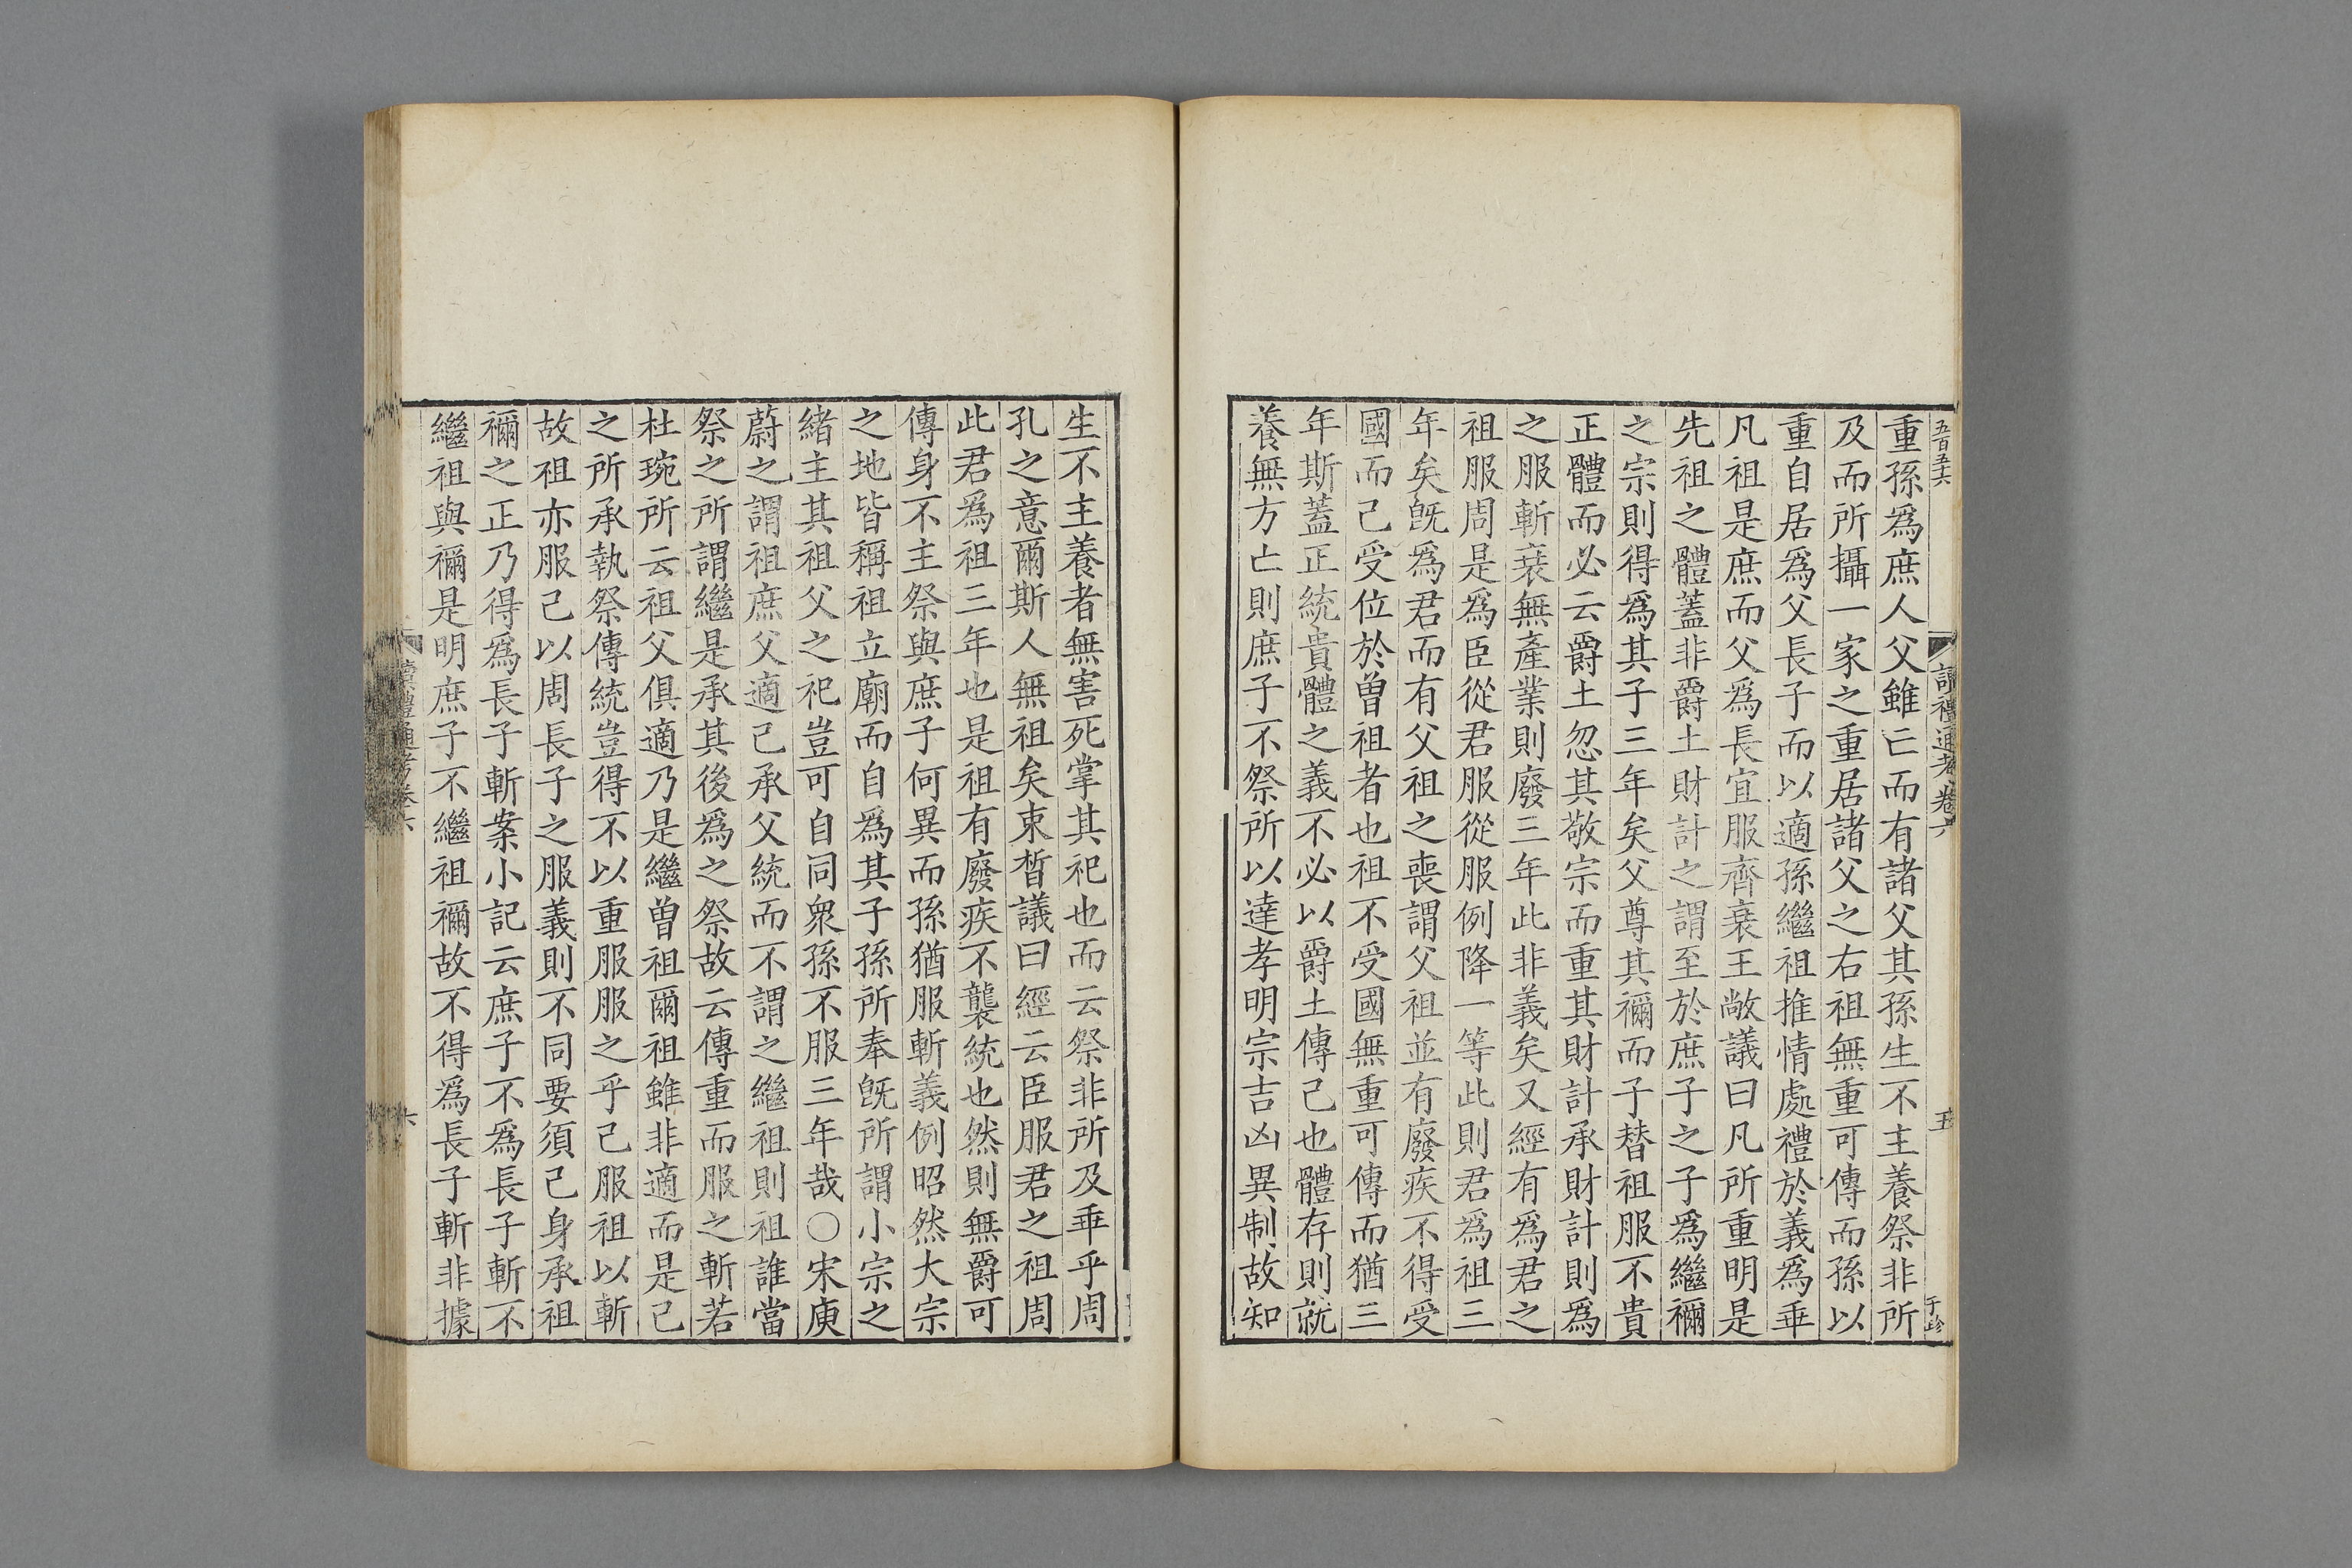 五百五十六
讀禮通考卷六
五
重孫爲庶人父雖亡而有諸父其孫生不主養祭非所
及而所攝一家之重居諸父之右祖無重可傳而孫以
重自居爲父長子而以適孫繼祖推情處禮於義爲乖
凡祖是庶而父爲長宜服齊衰王敞議曰凡所重明是
先祖之體蓋非爵土財計之謂至於庶子之子爲繼禰
之宗則得爲其子三年矣父尊其禰而子替祖服不貴
正體而必云爵土忽其敬宗而重其財計承財計則爲
之服斬衰無產業則廢三年此非義矣又經有爲君之
祖服周是爲臣從君服從服例降一等此則君爲祖三
年矣旣爲君而有父祖之喪謂父祖並有廢疾不得受
國而己受位於曾祖者也祖不受國無重可傳而猶三
年斯蓋正統貴體之義不必以爵土傳己也體存則就
養無方亡則庶子不祭所以達孝明宗吉凶異制故知
生不主養者無害死掌其祀也而云祭非所及乖乎周
孔之意爾斯人無祖矣束皙議曰經云臣服君之祖周
此君爲祖三年也是祖有廢疾不襲統也然則無爵可
傳身不主祭與庶子何異而孫猶服斬義例昭然大宗
之地皆稱祖立廟而自爲其子孫所奉旣所謂小宗之
緒主其祖父之祀豈可自同衆孫不服三年哉○宋庾
蔚之謂祖庶父適己承父統而不謂之繼祖則祖誰當
祭之所謂繼是承其後爲之祭故云傳重而服之斬若
杜琬所云祖父俱適乃是繼曾祖爾祖雖非適而是己
之所承執祭傳統豈得不以重服服之乎己服祖以斬
故祖亦服己以周長子之服義則不同要須己身承祖
禰之正乃得爲長子斬案小記云庶子不爲長子斬不
繼祖與禰是明庶子不繼祖禰故不得爲長子斬非據
讀禮通考卷六
六